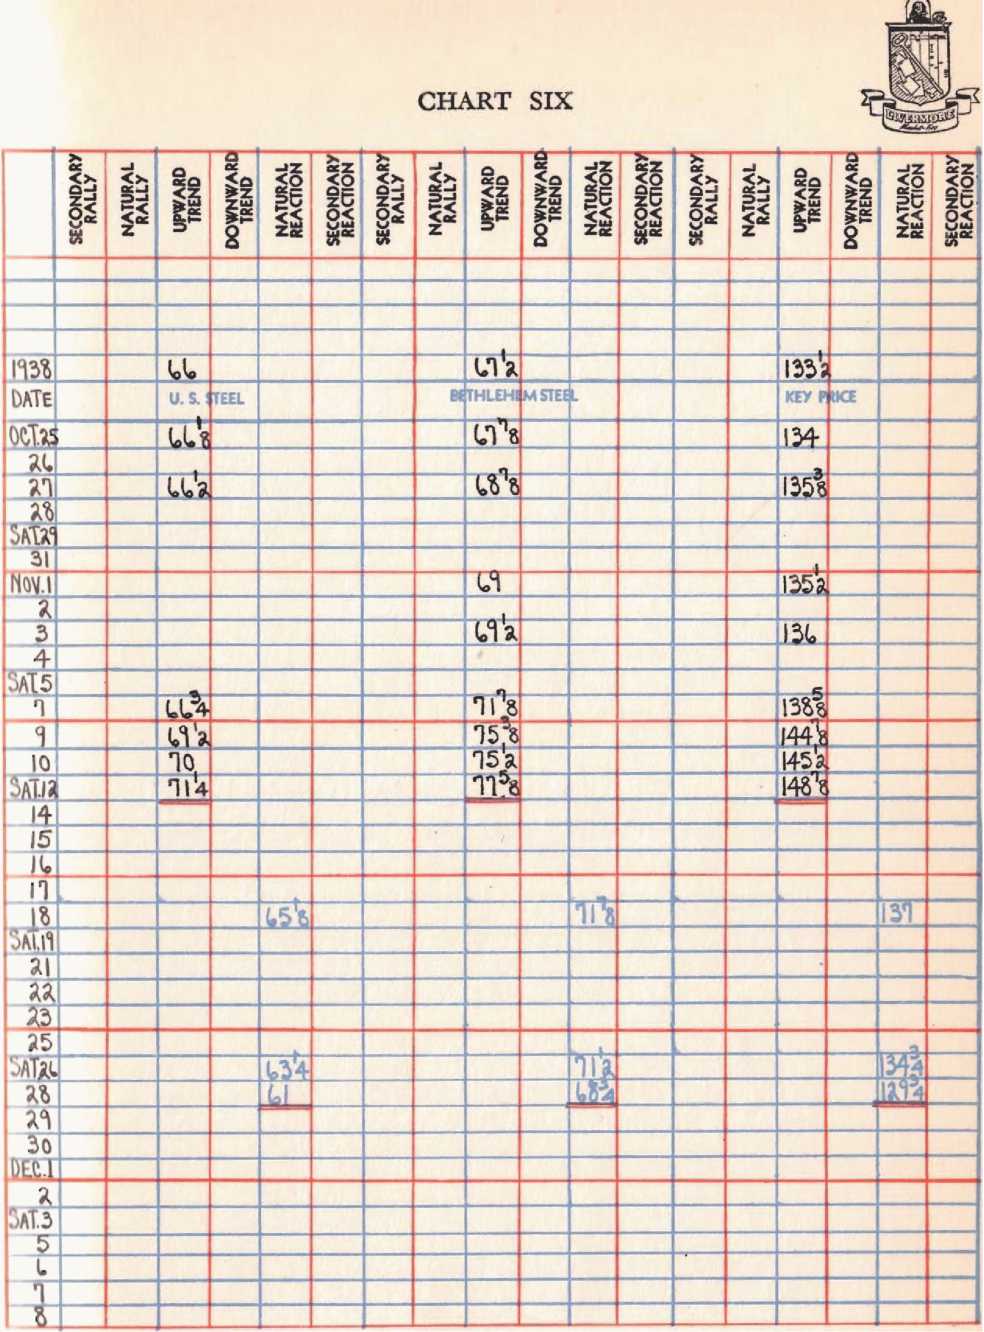 CHART SIX
LIVERMORE
Market Key
SECONDARY RALLY NATURAL RALLY UPWARD TREND DOWNWARD TREND NATURAL REACTION SECONDARY REACTION SECONDARY RALLY NATURAL RALLY UPWARD TREND DOWNWARD TREND NATURAL REACTION SECONDARY REACTION SECONDARY RALLY NATURAL RALLY UPWARD TREND DOWNWARD TREND NATURAL REACTION SECONDARY REACTION
1938 66 67 1/2 133 1/2
DATE U. S. STEEL BETHLEHEM STEEL KEY PRICE
OCT.25 66 1/8 67 7/8 134
26
27 66 1/2 68 7/8 135 3/8
28
SAT.29
31
NOV.1 69 135 1/2
2
3 69 1/2 136
4
SAT.5
7 66 3/4 71 7/8 138 5/8
9 69 1/2 75 3/8 144 7/8
10 70 75 1/2 145 1/2
SAT.12 71 1/4 77 5/8 148 7/8
14
15
16
17
18 65 1/8 71 7/8 137
SAT.19
21
22
23
25
SAT.26 63 1/4 71 1/2 134 3/4
28 61 68 3/4 129 3/4
29
30
DEC.1
2
SAT.3
5
6
7
8